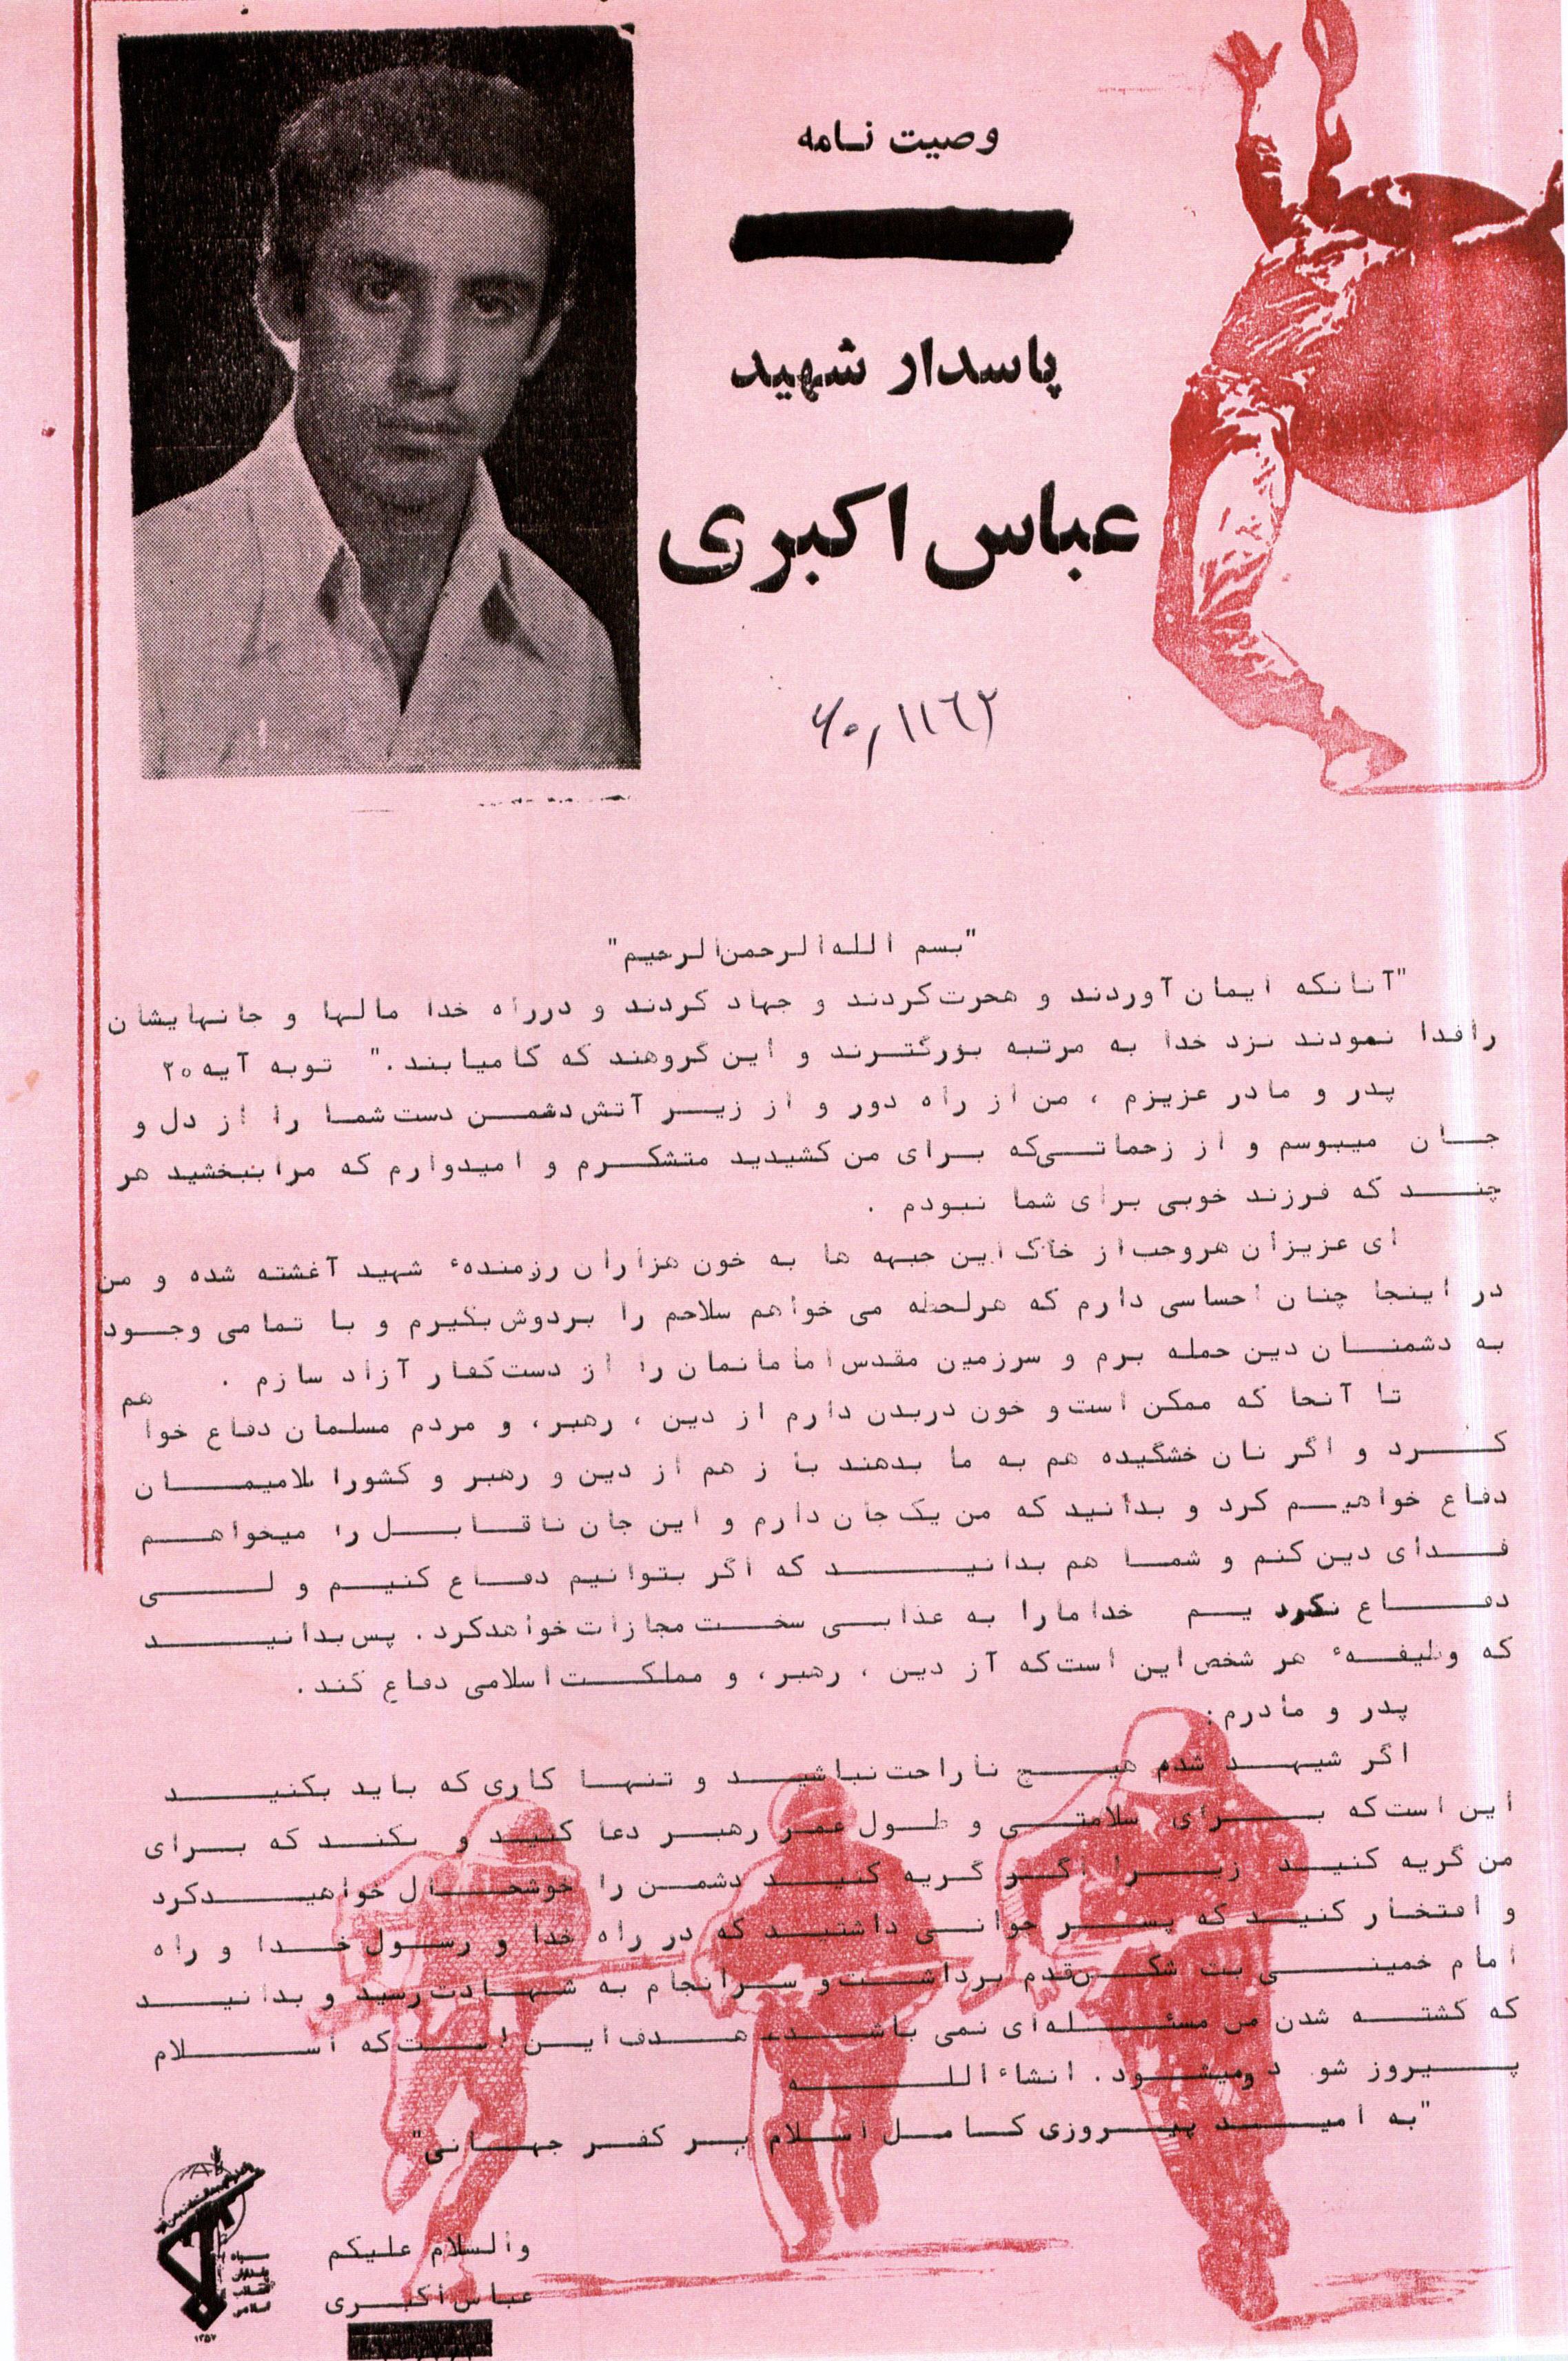 وصیت نامه
پاسدار شهید
عباس اکبری
۶۰٫۱۱۶۲
"بسم الله الرحمن الرحیم"
"آنانکه ایمان آوردند و هجرت کردند و جهاد کردند و در راه خدا مالها و جانهایشان
را فدا نمودند نزد خدا به مرتبه بزرگترند و این گروهند که کامیابند." توبه آیه ۲۰
پدر و مادر عزیزم ، من از راه دور و از زیر آتش دشمن دست شما را از دل و
جان میبوسم و از زحماتی که برای من کشیدید متشکرم و امیدوارم که مرا ببخشید هر
چند که فرزند خوبی برای شما نبودم .
ای عزیزان هر وجب از خاک این جبهه ها به خون هزاران رزمندهٔ شهید آغشته شده و من
در اینجا چنان احساسی دارم که هرلحظه می خواهم سلاحم را بردوش بگیرم و با تمامی وجود
به دشمنان دین حمله برم و سرزمین مقدس امامانمان را از دست کفار آزاد سازم .
تا آنجا که ممکن است و خون دربدن دارم از دین ، رهبر، و مردم مسلمان دفاع خوا هم
کرد و اگر نان خشگیده هم به ما بدهند باز هم از دین و رهبر و کشورا سلامیمان
دفاع خواهیم کرد و بدانید که من یک جان دارم و این جان ناقابل را میخواهم
فدای دین کنم و شما هم بدانید که اگر بتوانیم دفاع کنیم و لی
دفاع نکرد یم خدا مارا به عذابی سخت مجازات خواهدکرد. پس بدانید
که وظیفهٔ هر شخص این است که از دین ، رهبر، و مملکت اسلامی دفاع کند .
پدر و مادرم:
اگر شهید شدم هیچ ناراحت نباشید و تنها کاری که باید بکنید
این است که برای سلامتی و طول عمر رهبر دعا کنید و نکند که برای
من گریه کنید زیرا اگر گریه کنید دشمن را خوشحال خواهیدکرد
و افتخار کنید که پسر جوانی داشتید که در راه خدا و رسول خدا و راه
امام خمینی بت شکن قدم برداشت و سرانجام به شهادت رسید و بدانید
که کشته شدن من مسئله ای نمی باشد، هدف این است که اسلام
پیروز شو د ومیشود. انشاءالله
"به امید پیروزی کامل اسلام بر کفر جهانی"
والسلام علیکم
عباس اکبری
سپاه
پاسداران
انقلاب
اسلامی
۱۳۵۷